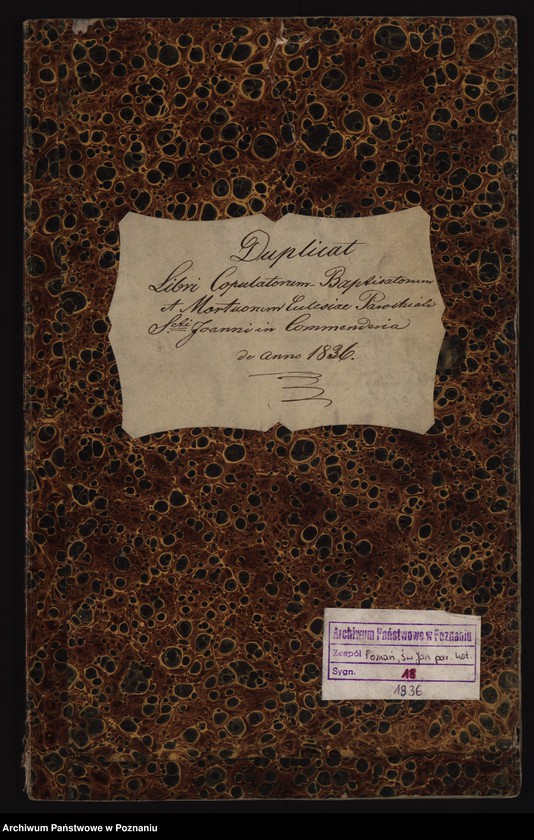 Duplicat
Libri Copulatorum Baptisatorum
et Mortuorum Eclesiae Parochialis
Scti Joanni in Commenderia
de anno 1836.
Archiwum Państwowe w Poznaniu
Zespół Poznań, św Jan par. kat.
Sygn. 18
1836
Archiwum Państwowe w Poznaniu